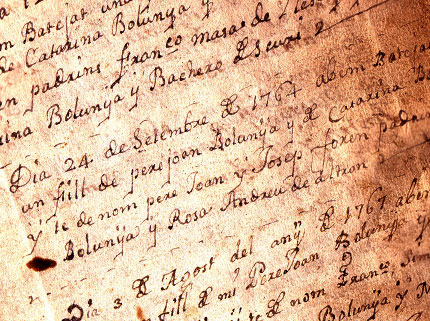 m Batejat una
de Catarina Bolunya y
en padrins franco masa de
ina Bolunya y Bachero
Dia 24 de Setembre de 1767 abem Batejat
un fill de perejoan Bolunya y de Catarina Bo
y te de nom pere Joan y Josep foren padrin
Bolunya y Rosa Andreu de altron
Dia 3 de Agost del any de 1767 abem
fill de mi PereJoan Bolunya y
de nom franco
Bolunya y